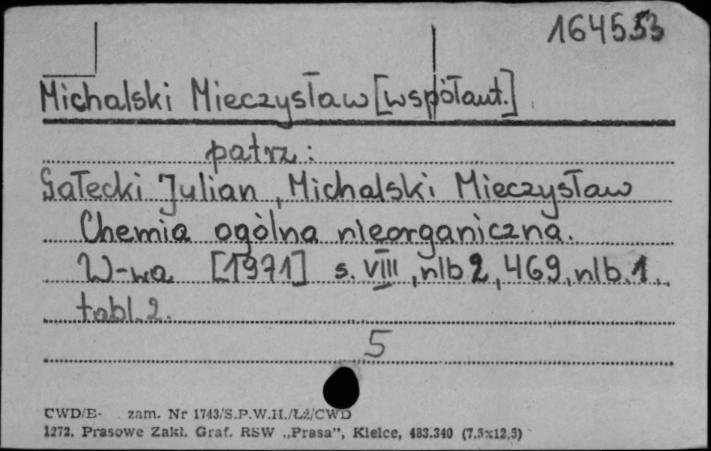 164553
Michalski Mieczysław [współaut.]
patrz:
Gałecki Julian, Michalski Mieczysław
Chemia ogólna nieorganiczna.
W-wa [1971] s. VIII, nlb 2, 469, nlb. 1.
tabl. 2.
5
CWD/E- . zam. Nr 1743/S.P.W.H./Łź/CWD
1272. Prasowe Zakł. Graf. RSW „Prasa”, Kielce, 483.340 (7,5x12,5)